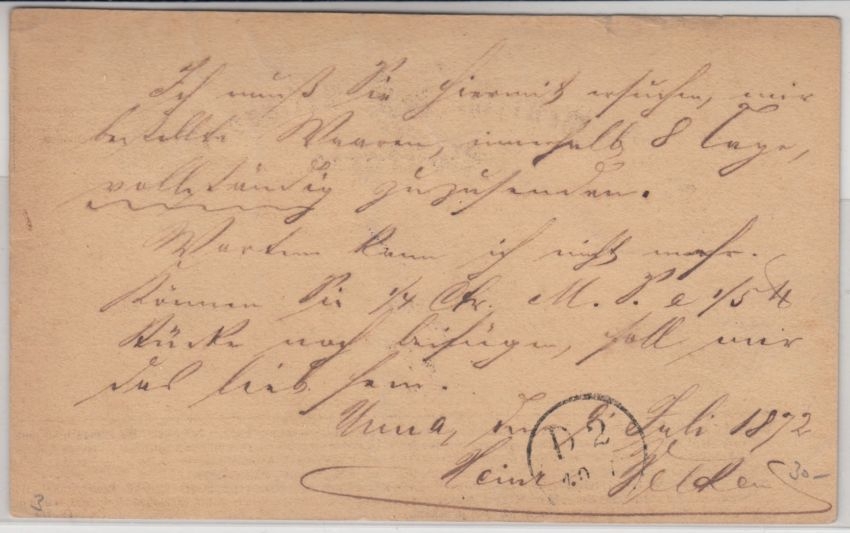 Ich muß Sie hiermit ersuchen, mir
bestellte Waaren, innerhalb 8 Tage,
vollständig zuzusenden.
Warten kann ich nicht mehr.
Können Sie 1/4 Ctr. M. S. a 1/5 ℔
Stücke noch beifügen, soll mir
das lieb sein.
Unna, den Juli 1872
D 2
Heinr
30-
3